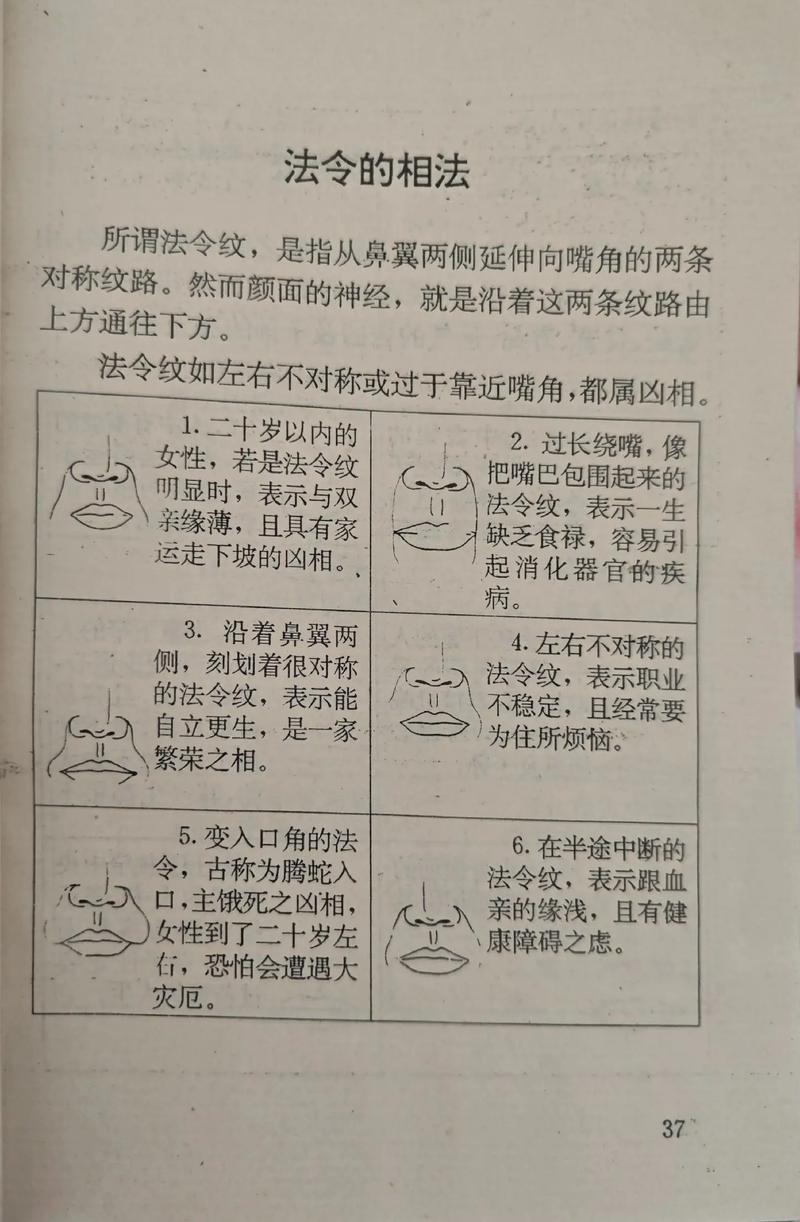 法令的相法
所谓法令纹，是指从鼻翼两侧延伸向嘴角的两条
对称纹路。然而颜面的神经，就是沿着这两条纹路由
上方通往下方。
法令纹如左右不对称或过于靠近嘴角，都属凶相。
1. 二十岁以内的
女性，若是法令纹
明显时，表示与双
亲缘薄，且具有家
运走下坡的凶相。
2. 过长绕嘴，像
把嘴巴包围起来的
法令纹，表示一生
缺乏食禄，容易引
起消化器官的疾
病。
3. 沿着鼻翼两
侧，刻划着很对称
的法令纹，表示能
自立更生，是一家
繁荣之相。
4. 左右不对称的
法令纹，表示职业
不稳定，且经常要
为住所烦恼。
5. 变入口角的法
令，古称为腾蛇入
口，主饿死之凶相，
女性到了二十岁左
右，恐怕会遭遇大
灾厄。
6. 在半途中断的
法令纹，表示跟血
亲的缘浅，且有健
康障碍之虑。
37